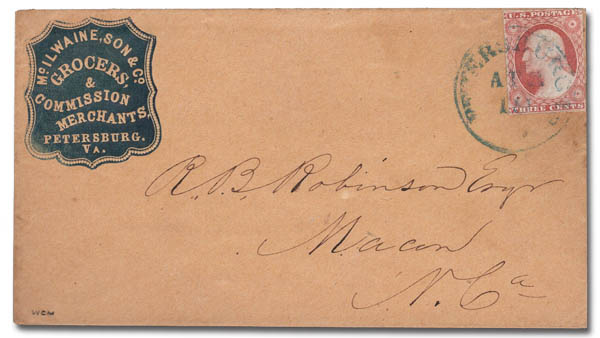 McILWAINE, SON & Co.
GROCERS,
&
COMMISSION
MERCHANTS,
PETERSBURG,
VA.
U.S. POSTAGE
THREE CENTS
R. B. Robinson Esqr
Macon
N. Ca
WCM